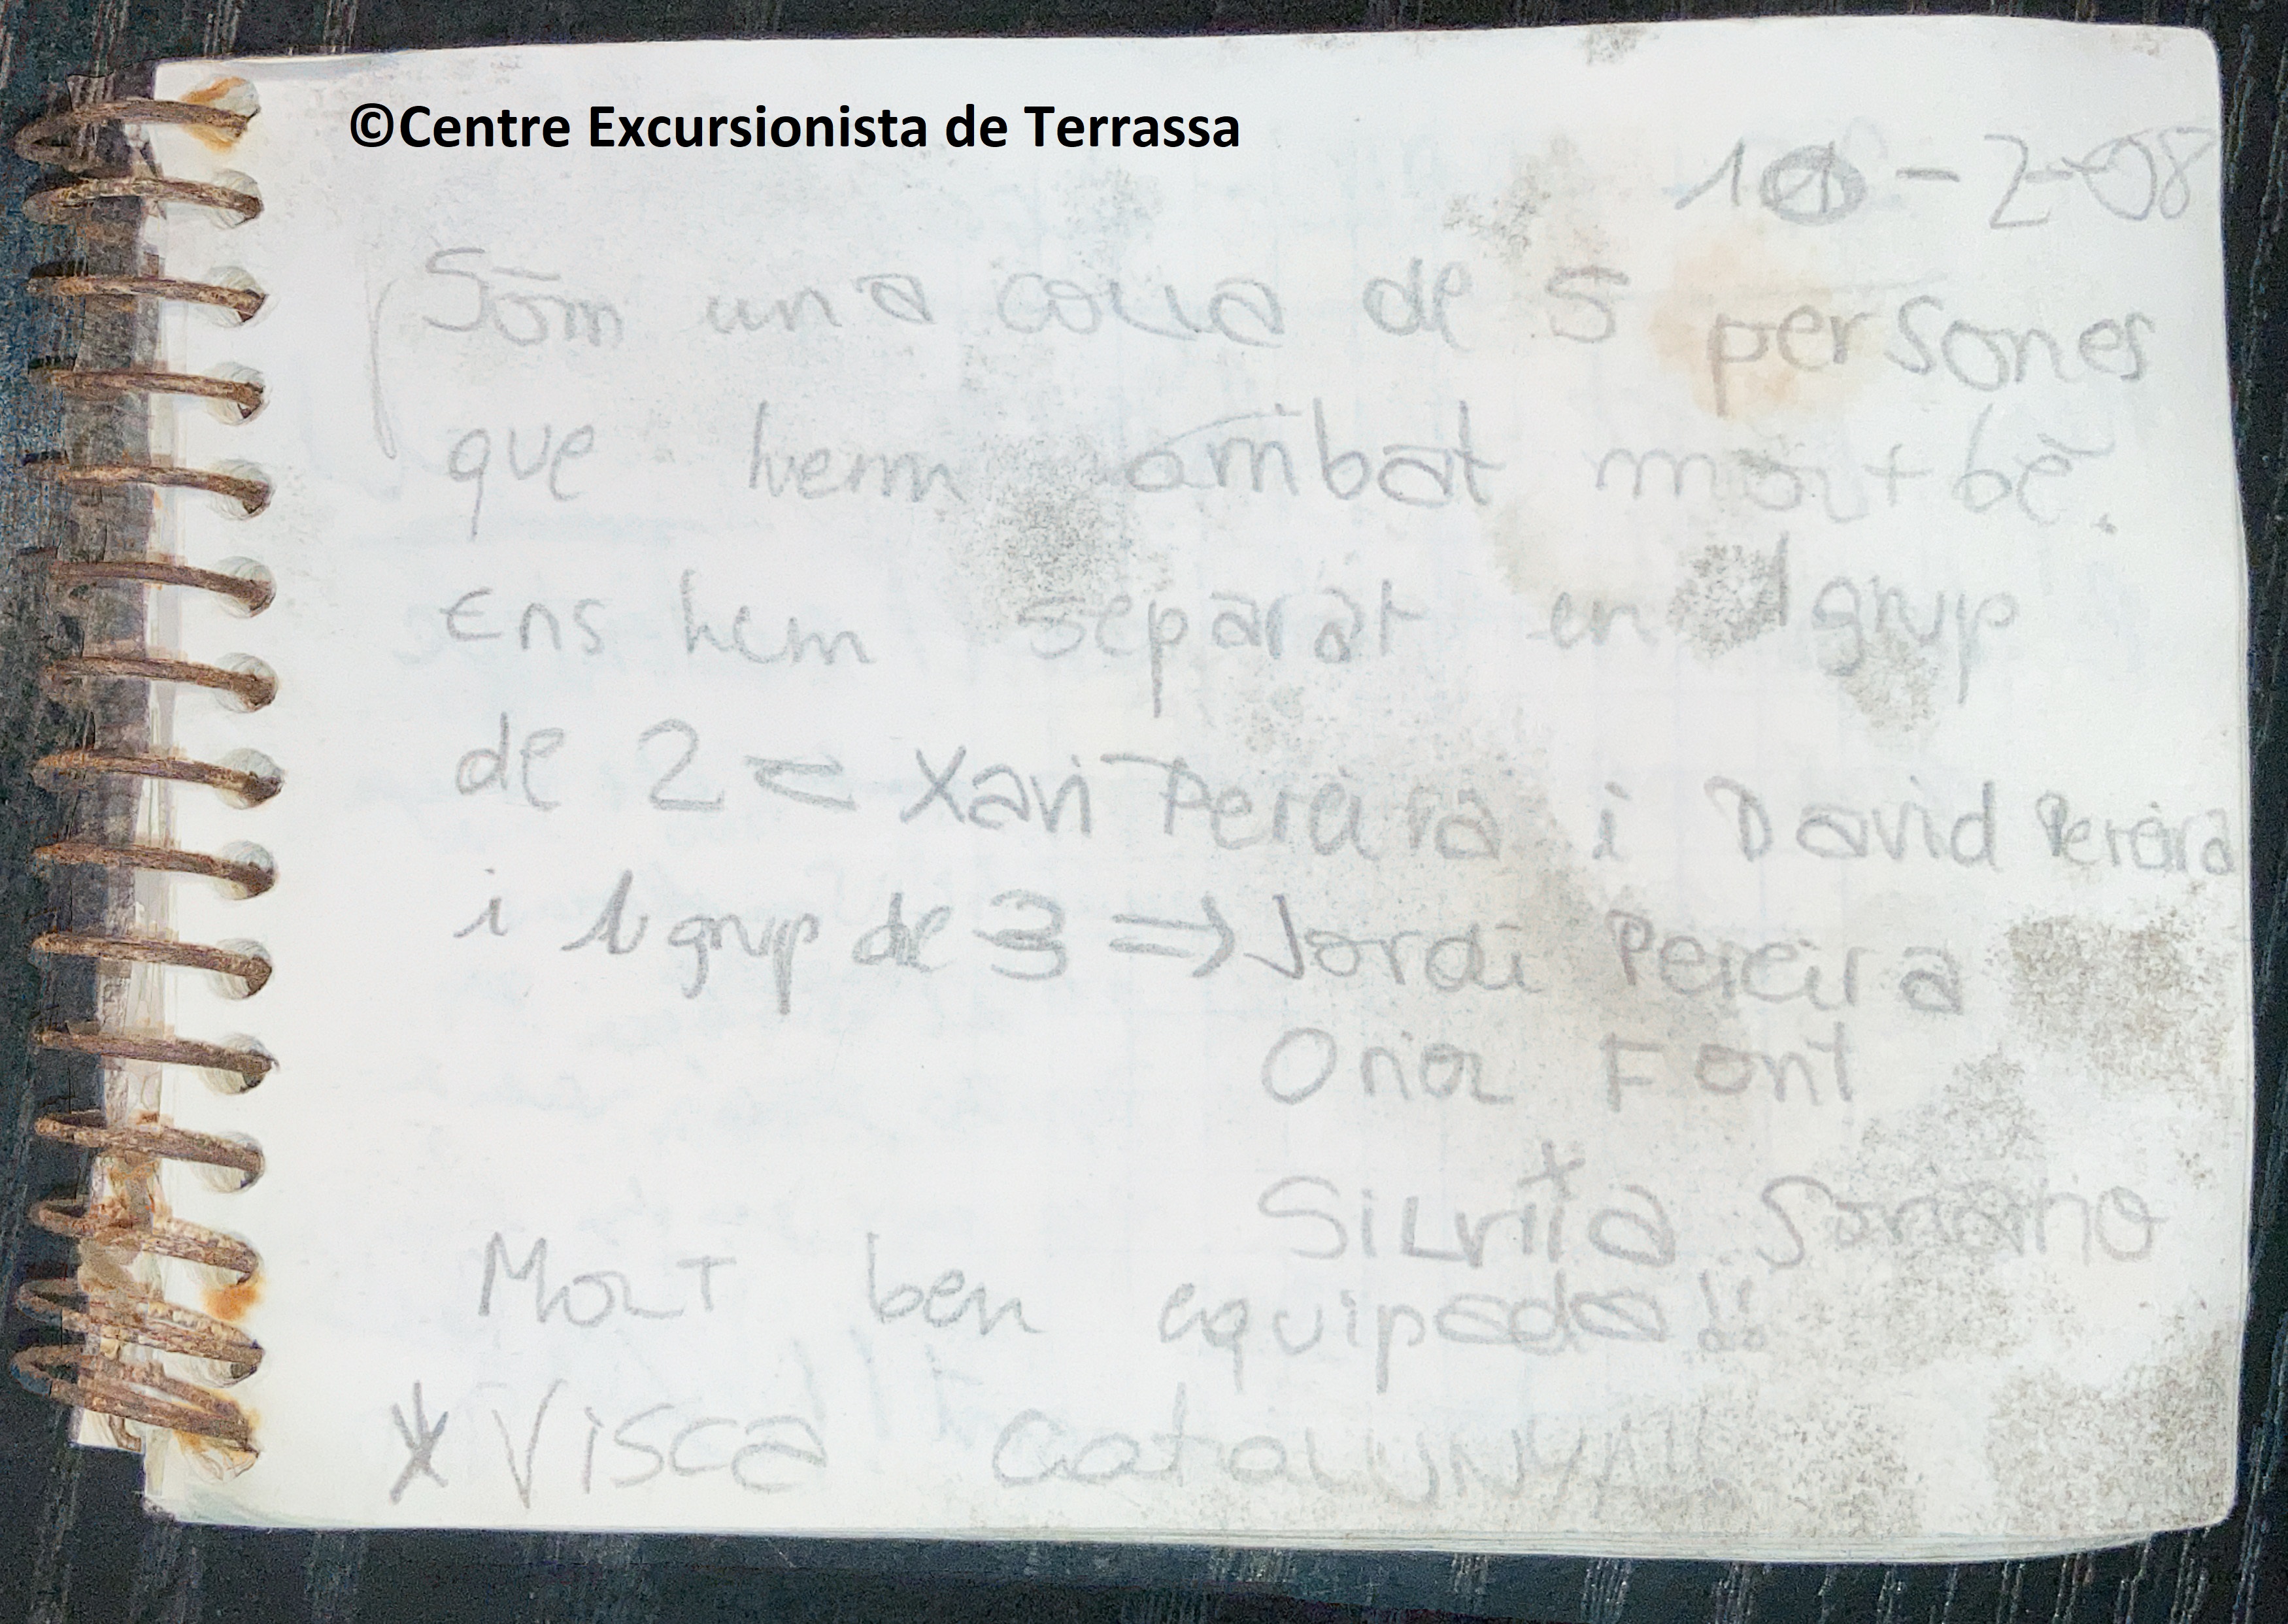 ©Centre Excursionista de Terrassa
10-2-08
Sóm una colla de 5 persones
que hem arribat molt bé.
Ens hem separat en 1 grup
de 2 = Xavi Pereira i David Pereira
i 1 grup de 3 => Jordi Pereira
Oriol Font
Silvia
Molt ben equipada!!
* Visca CatalUNYA!!